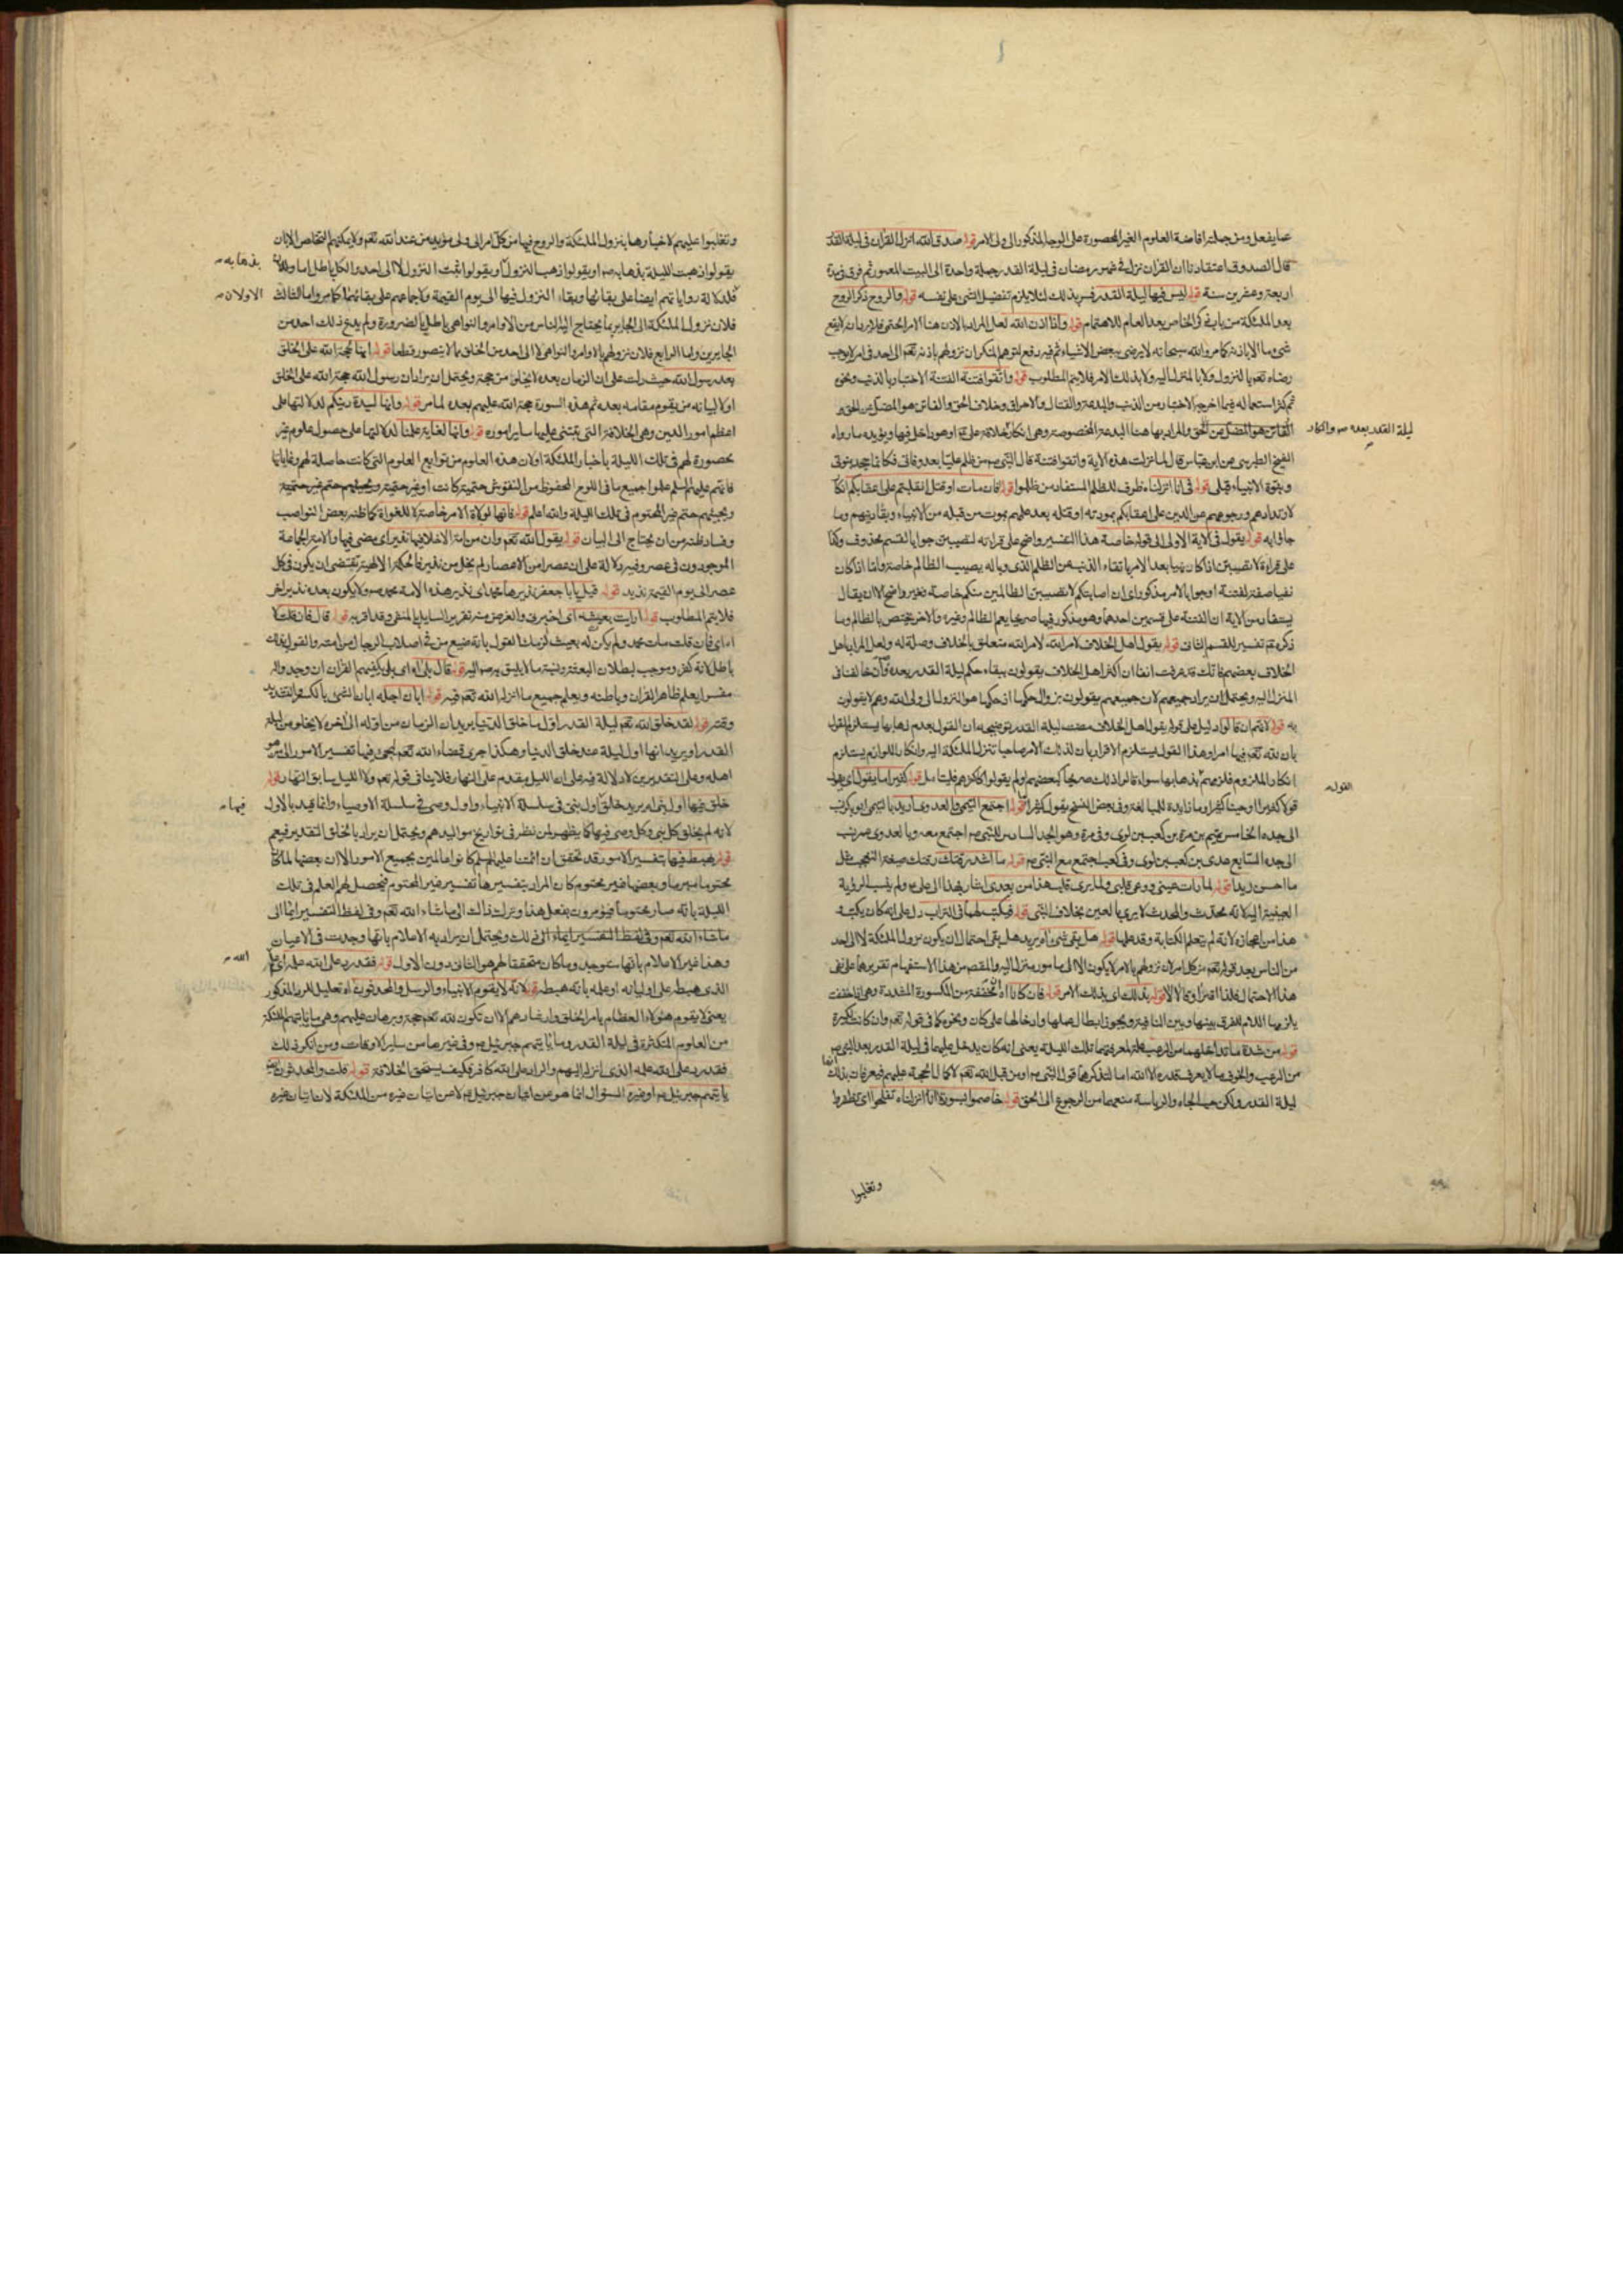 عما يفعل ومن جملته افاضة العلوم الغير المحصورة على الوجه المذكور الى ولى الامر قوله صدق الله انزل القرآن فى ليلة القدر
قال الصدوق اعتقادنا ان القرآن نزل فى شهر رمضان فى ليلة القدر جملة واحدة الى البيت المعمور ثم فرق فى مدة
اربعة وعشرين سنة قوله ليس فيها ليلة القدر فسر بذلك لئلا يلزم تفضيل الشئ على نفسه قوله والروح ذكر الروح
بعد الملائكة من باب ذكر الخاص بعد العام للاهتمام قوله واذا اذن الله لعل المراد بالاذن هنا الامر الحتمى
شئ وما الا باذنه كما مر والله سبحانه لا يرضى ببعض الاشياء ثم فيه رفع لتوهم المنكر ان نزولهم باذنه تعم الى احد فى امر لا يوجب
رضاه تعم بالنزول ولا بالمنزل اليه ولا بذلك الامر فلا يتم المطلوب قوله واتقوا فتنة الفتنة الاختبار بالذنب ونحوه
ثم كثر استعماله فيما اخرجه الاختبار من الذنب والبدعة والقتال والاحراق وخلاف الحق والفاتن هو المضل عن الحق
الفاتن هو المضل عن الحق والمراد بها هنا البدعة المخصوصة وهى انكار خلافة على ع او هو داخل فيها ويؤيده ما رواه
ليلة القدر بعده ص وانكار
الشيخ الطبرسى عن ابن عباس قال لما نزلت هذه الاية واتقوا فتنة قال النبى ص من ظلم عليا بعد وفاتى فكانما جحد نبوتى
ونبوة الانبياء قبلى قوله فى انا انزلناه ظرف للظلم المستفاد من ظلموا قوله فان مات او قتل انقلبتم على اعقابكم انكار
لارتدادهم ورجوعهم عن الدين على اعقابكم بموته او قتله بعد علمهم بموت من قبله من الانبياء وبقاء دينهم وما
جاؤا به قوله يقول فى الاية الاولى الى قوله خاصة هذا التفسير واضح على قراءته لتصيبن جوابا لقسم محذوف وكذا
على قراءة لا تصيبن اذا كان نهيا بعد الامر باتقاء الذنب عن الظلم الذى وباله يصيب الظالم خاصة واما اذا كان
نفيا صفة لفتنة او جوابا لامر مذكور اى ان اصابتكم لا تصيبن الظالمين منكم خاصة فغير واضح الا ان يقال
يستفاد من الاية ان الفتنة على قسمين احدهما وهو مذكور فيها صريحا يعم الظالم وغيره والاخر يختص بالظالم وما
ذكره تم تفسير للقسم الثانى قوله يقول اهل الخلاف لامر الله لامر الله متعلق بالخلاف وصلة له ولعل المراد باهل
الخلاف بعضهم فانك قد عرفت انفا ان اكثر اهل الخلاف يقولون ببقاء حكم ليلة القدر بعده وان خالفنا فى
المنزل اليه ويحتمل ان يراد جميعهم لان جميعهم يقولون بزوال حكمها اذ حكمها هو النزول الى ولى الله وهم لا يقولون
به قوله لانهم ان قالوا دليل على قوله يقول اهل الخلاف مضت ليلة القدر توضيحه ان القول بعدم ذهابها يستلزم القول
بان لله تعم فيها امرا وهذا القول يستلزم الاقرار بان لذلك الامر صاحبا تنزل الملائكة اليه وانكار اللوازم يستلزم
انكار الملزوم فلزمهم ذهابها سواء قالوا ذلك صريحا كبعضهم ولم يقولوا كاكثرهم فليتامل قوله كثيرا ما يقول اى يقول
القول
قولا كثيرا او حينا كثيرا وما زايدة للمبالغة وفى بعض النسخ يقول كثيرا قوله اجتمع التيمى والعدوى اريد بالتيمى ابو بكر نسب
الى جده الخامس تيم بن مرة بن كعب بن لوى وفى مرة وهو الجد السادس للنبى ص اجتمع معه وبالعدوى عمر نسب
الى جده السابع عدى بن كعب بن لوى وفى كعب اجتمع مع النبى ص قوله ما اشد رقتك رقتك صيغة التعجب مثل
ما احسن زيدا قوله لما رات عينى ووعى قلبى ولما يرى قلب هذا من بعدى اشار بهذا الى على ع ولم ينسب الرؤية
العينية اليه لانه محدث والمحدث لا يرى بالعين بخلاف النبى قوله فيكتب لهما فى التراب دل على انه كان يكتب
هذا من اعجازه لانه لم يتعلم الكتابة وقد علمها قوله هل بقى شئ اه يريد هل بقى احتمال ان يكون نزول الملائكة لا الى احد
من الناس بعد قوله تعم من كل امر لان نزولهم بالامر لا يكون الا الى مامور منزل اليه والمقصد من هذا الاستفهام تقريرها على نفى
هذا الاحتمال فلذا اقرا وقالا لا قوله بذلك اى بذلك الامر قوله فان كانا اه المخففة من المكسورة المشددة وهى اذا خففت
يلزمها اللام للفرق بينها وبين النافية ويجوز ابطال عملها وادخالها على كان ونحوه كما فى قوله تعم وان كانت لكبيرة
قوله من شدة ما تداخلهما من الرعب علة لمعرفتهما تلك الليلة يعنى انه كان يدخل عليهما فى ليلة القدر بعد النبى ص
من الرعب والخوف ما لا يعرف قدره الا الله اما لتذكرهما قول النبى ص او من قبل الله تعم لاكمال الحجة عليهم فيعرفان بذلك انها
ليلة القدر ولكن حب الجاه والرياسة منعهما من الرجوع الى الحق قوله خاصموا بسورة انا انزلناه تفلحوا اى تظفروا
وتغلبوا
وتغلبوا عليهم لاخبارها بنزول الملائكة والروح فيها من كل امر الى ولى مؤيد من عند الله تعم ولا يمكنهم التخلص الا بان
يقولوا ذهبت الليلة بذهابه ص او يقولوا ذهب النزول او يقولوا ثبت النزول لا الى احد والكل باطل اما
بذهابه
فلدلالة رواياتهم ايضا على بقائها وبقاء النزول فيها الى يوم القيمة ولاجماعهم على بقائهما كما مر واما الثالث
الاولان
فلان نزول الملائكة الى الجاير بما يحتاج اليه الناس من الاوامر والنواهى باطل بالضرورة ولم يدع ذلك احد من
الجايرين واما الرابع فلان نزولهم بالاوامر والنواهى لا الى احد من الخلق مما لا يتصور قطعا قوله انها لحجة الله على الخلق
بعد رسول الله حيث دلت على ان الزمان بعده لا يخلو من حجة ويحتمل ان يراد ان رسول الله حجة الله على الخلق
اولا لبيانه من يقوم مقامه بعده ثم هذه السورة حجة الله عليهم بعده لما مر قوله وانها لسيدة دينكم لدلالتها على
اعظم امور الدين وهى الخلافة التى يبتنى عليها ساير اموره قوله وانها لغاية علمنا لدلالتها على حصول علوم غير
محصورة لهم فى تلك الليلة باخبار الملائكة اولان هذه العلوم من توابع العلوم التى كانت حاصلة لهم وغاياتها
فانهم عليهم السلم علموا جميع ما فى اللوح المحفوظ من النقوش حتمية كانت او غير حتمية
ويجيئهم حتم غير المحتوم فى تلك الليلة والله اعلم قوله فانها لولاة الامر خاصة لا للغواة كما ظنه بعض النواصب
وفساد ظنه من ان يحتاج الى البيان قوله يقول الله تعم وان من امة الا خلا فيها نذير اى مضى فيها والامة الجماعة
الموجودون فى عصر وفيه دلالة على ان عصرا من الاعصار لم يخل من نذير فالحكمة الالهية تقتضى ان يكون فى كل
عصر الى يوم القيمة نذير قوله قيل يا با جعفر نذيرها محمد اى نذير هذه الامة محمد ص ولا يكون بعده نذير اخر
فلا يتم المطلوب قوله ارايت بعيثه اى اخبرنى والغرض منه تقرير السايل بالمنفى وقد اقر به قوله قال فان قلت لا
اه اى فان قلت مات محمد ولم يكن له بعيث لزمك القول بانه ضيع من فى اصلاب الرجال من امته والقول بذلك
باطل لانه كفر وموجب لبطلان البعثة ونسبة ما لا يليق به ص اليه قوله قال بلى اه اى بلى يكفيهم القران ان وجدوا له
مفسرا يعلم ظاهر القران وباطنه ويعلم جميع ما انزل الله تعم فيه قوله ابان اجله ابان الشئ بالكسر والتشديد
وقته قوله لقد خلق الله تعم ليلة القدر اول ما خلق الدنيا يريد ان الزمان من اوله الى اخره لا يخلو من ليلة
القدر او يريد انها اول ليلة عند خلق الدنيا وهكذا جرى قضاء الله تعم ليجئ فيها تفسير الامور الى من هو
اهله وعلى التقديرين لا دلالة فيه على ان الليل مقدم على النهار فلا ينافى قوله تعم ولا الليل سابق النهار قوله
خلق فيها اول نبى اه يريد خلق اول نبى فى سلسلة الانبياء واول وصى فى سلسلة الاوصياء وانما قيد بالاول
فيها
لانه لم يخلق كل نبى وكل وصى فيها كما يظهر لمن نظر فى تواريخ مواليدهم ويحتمل ان يراد بالخلق التقدير فيعم
قوله يهبط فيها بتفسير الامور قد تحقق ان ائمتنا عليهم السلم كانوا عالمين بجميع الامور الا ان بعضها لما كان
محتوما مبرما وبعضها غير محتوم كان المراد بتفسيرها تفسير غير المحتوم فيحصل لهم العلم فى تلك
الليلة بانه صار محتوما فيؤمرون بفعل هذا وترك ذاك الى ما شاء الله تعم وفى لفظ التفسير ايماء الى
ما شاء الله تعم وفى لفظ التفسير ايماء الى ذلك ويحتمل ان يراد به الاعلام بانها وجدت فى الاعيان
وهذا غير الاعلام بانها ستوجد وما كان متحققا لهم هو الثانى دون الاول قوله فقد رد على الله علمه اى علم
الله
الذى هبط على اوليائه او علمه بانه هبط قوله لانه لا يقوم الانبياء والرسل والمحدثون اه تعليل للرد المذكور
يعنى لا يقوم هؤلاء العظام بامر الخلق وارشادهم الا ان تكون لله تعم حجة وبرهان عليهم وهى ما ياتيهم الملائكة
من العلوم المتكثرة فى ليلة القدر وما ياتيهم جبرئيل ع وفى غيرها من ساير الاوقات ومن انكر ذلك
فقد رد على الله علمه الذى انزل اليهم والراد على الله كافر فكيف يستحق الخلافة قوله قلت والمحدثون ايضا
ياتيهم جبرئيل ع او غيره السؤال انما هو عن اتيان جبرئيل ع لا عن اتيان غيره من الملائكة لان اتيان غيره